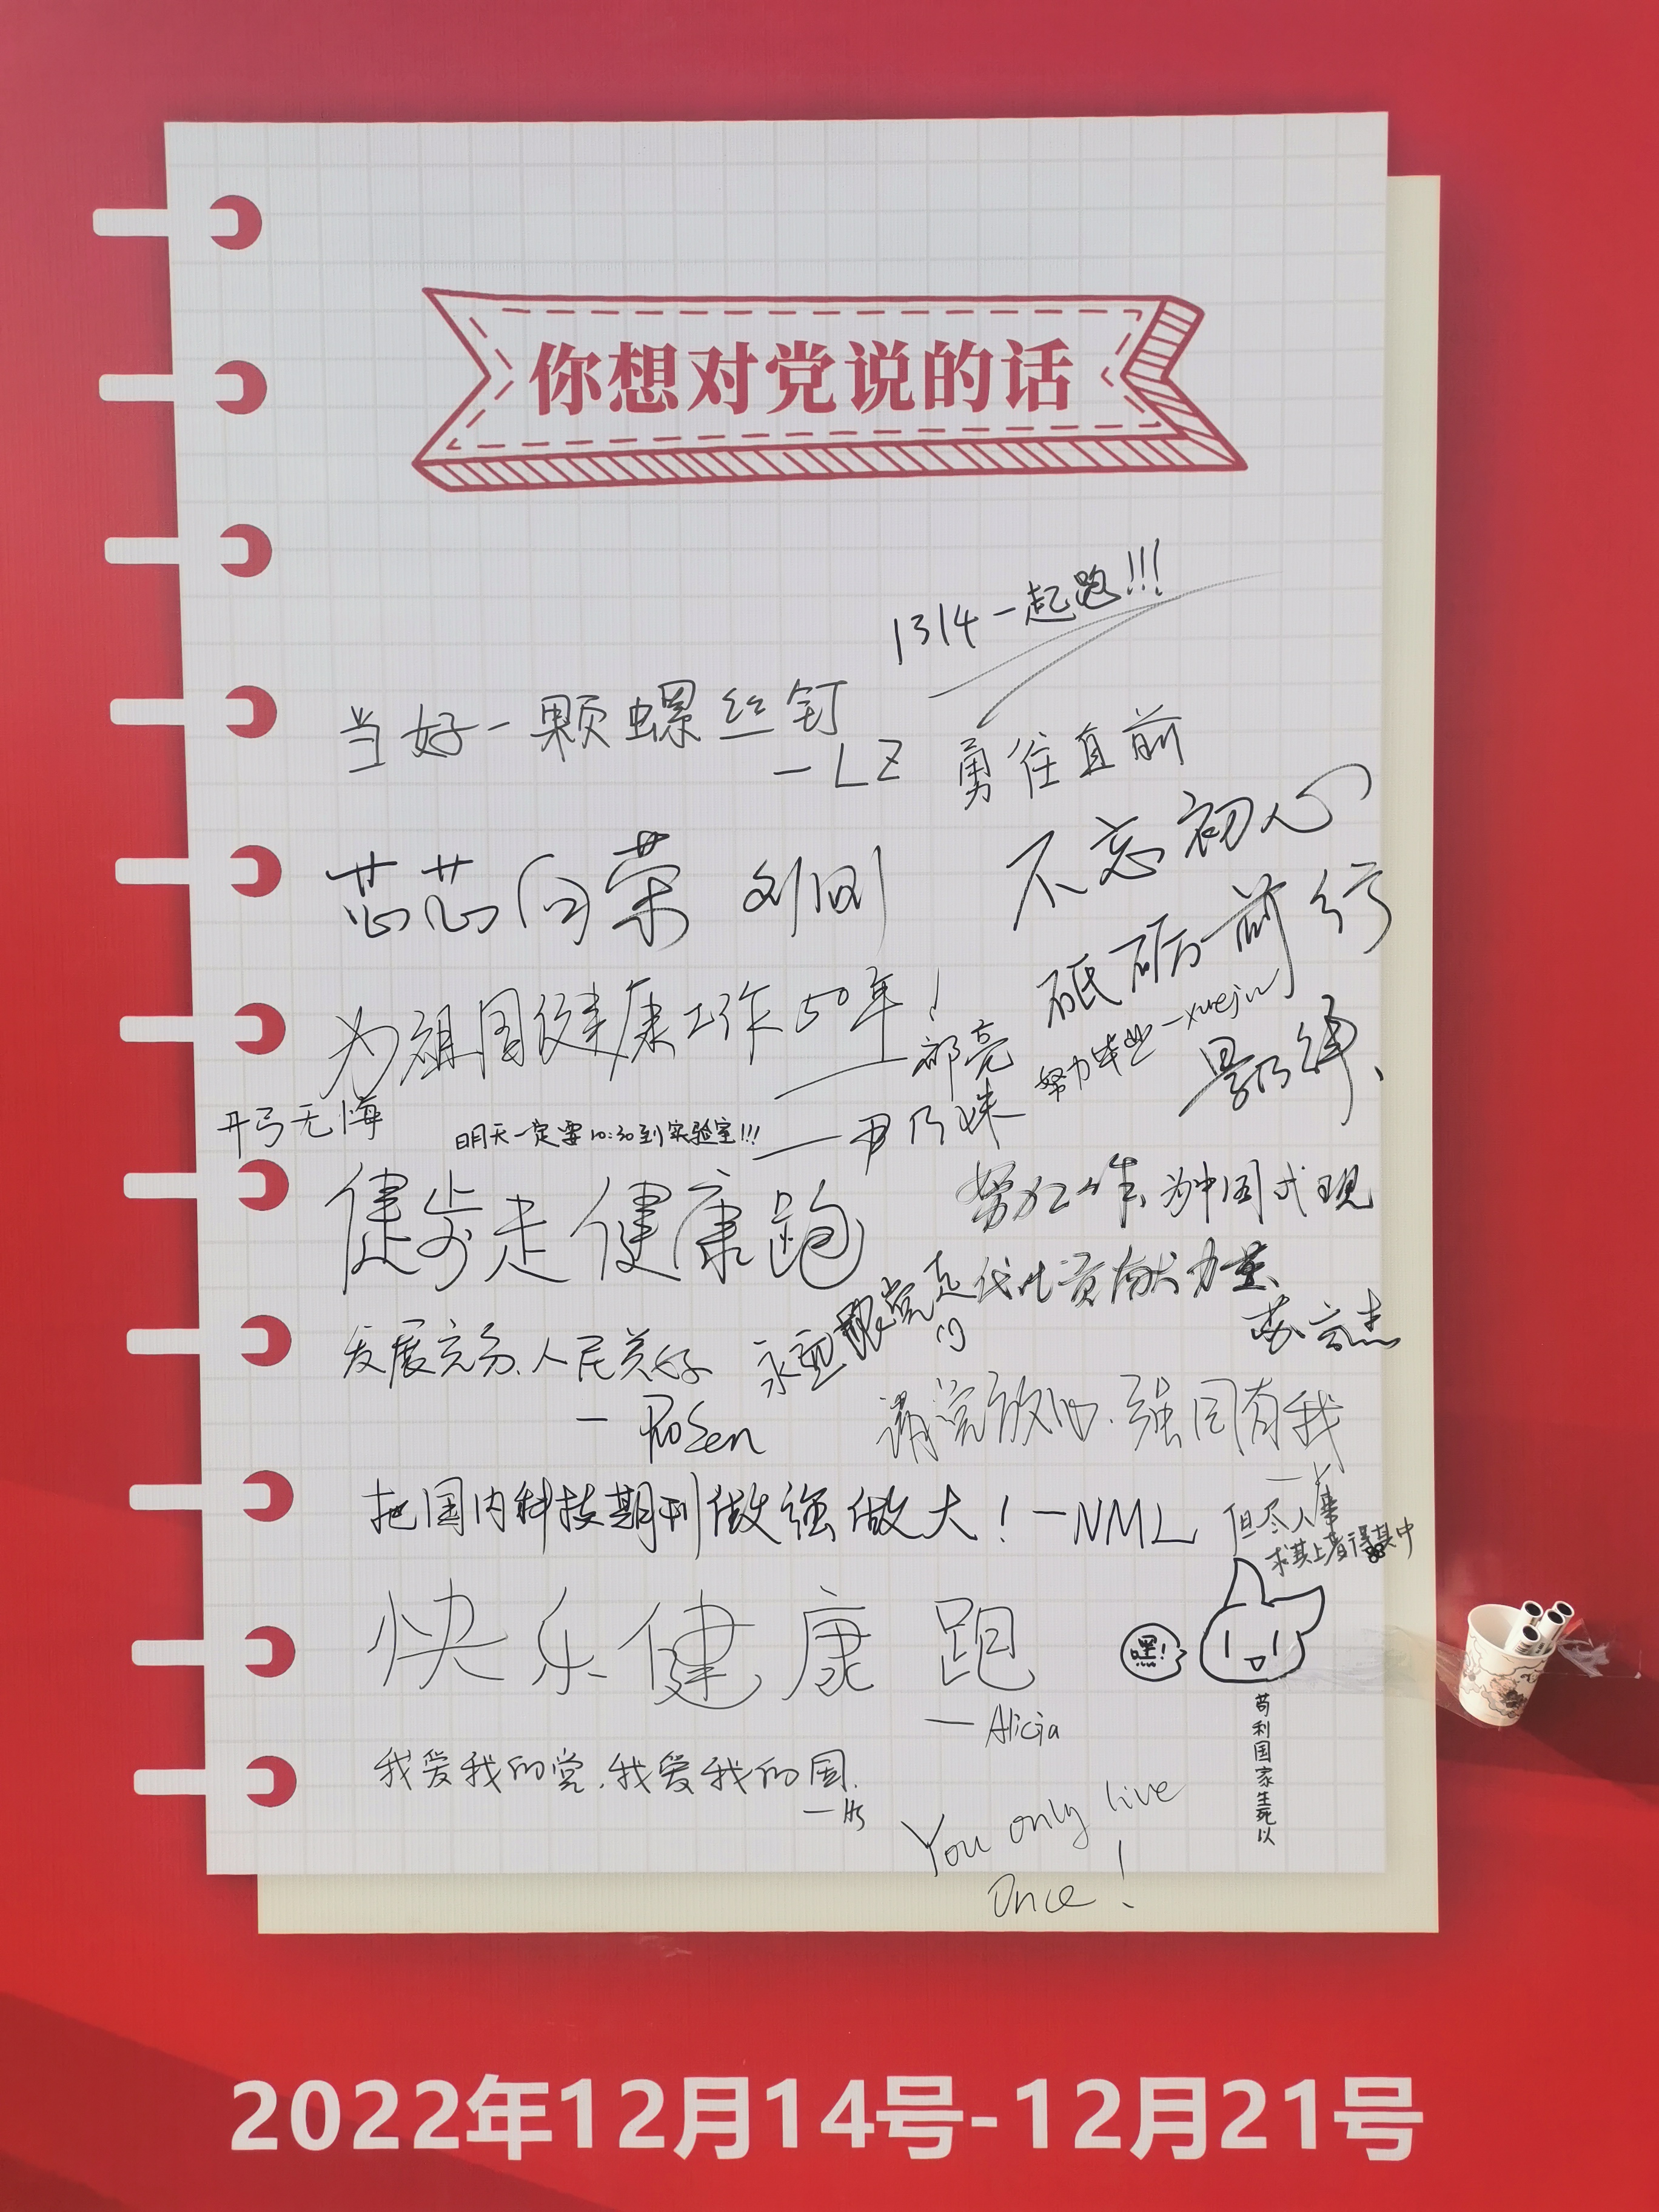 你想对党说的话
1314一起跑!!!
当好一颗螺丝钉
—LZ
勇往直前
不忘初心
芯芯向荣 刘刚
砥砺前行
为祖国健康工作50年！
郝亮
努力毕业—xuejin
开弓无悔
明天一定要10:30到实验室!!!
—尹乃姝
健步走健康跑
努力工作,为中国式现
代化贡献力量
永远跟党走
发展充分、人民美好
—RoSen
请党放心，强国有我
把国内科技期刊做强做大！—NML
但尽人事
求其上者得其中
快乐健康跑
—Alicia
嘿!
苟利国家生死以
我爱我的党，我爱我的国.
You only live
Once!
2022年12月14号-12月21号